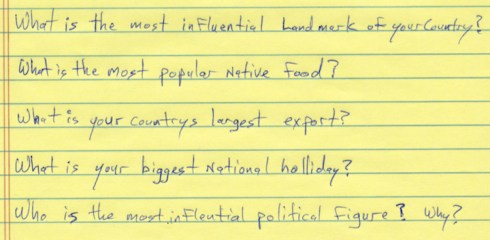 What is the most influential landmark of your Country?
What is the most popular Native food?
What is your countrys largest export?
What is your biggest National holliday?
Who is the most inflential political figure? Why?